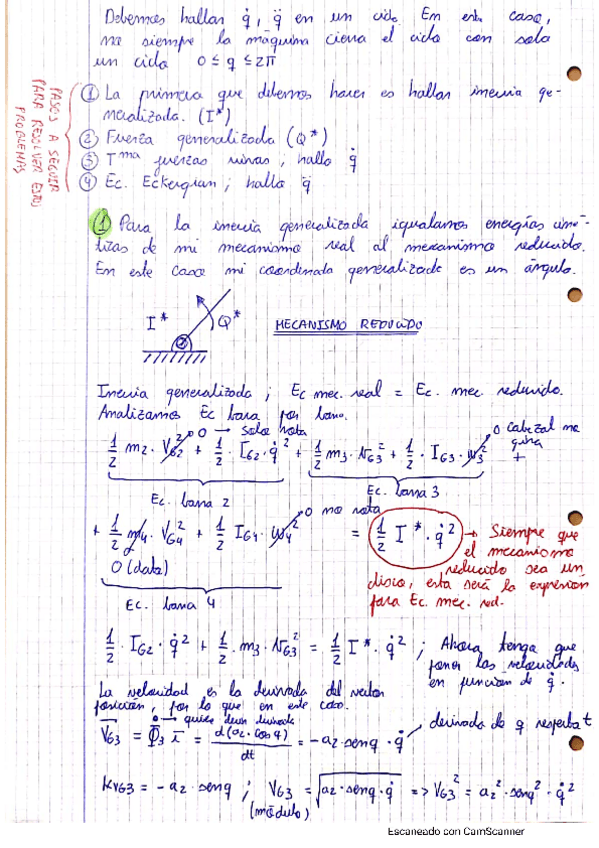 Debemos hallar q̇, q̈ en un ciclo. En este caso,
no siempre la máquina cierra el ciclo con solo
un ciclo 0 ≤ q ≤ 2π
PASOS A SEGUIR
PARA RESOLVER ESTOS
PROBLEMAS
① La primera que debemos hacer es hallar inercia ge-
neralizada. (I*)
② Fuerza generalizada (Q*)
③ Tma fuerzas vivas, hallo q̇
④ Ec. Eckergian; hallo q̈
① Para la inercia generalizada igualamos energías ciné-
ticas de mi mecanismo real al mecanismo reducido.
En este caso mi coordenada generalizada es un ángulo.
I* Q*
②
MECANISMO REDUCIDO
Inercia generalizada; Ec mec. real = Ec. mec. reducido.
Analizamos Ec barra por barra.
0 → solo rota
0 cabezal no
gira
1/2 m2 · VG2² + 1/2 · IG2 · q̇² + 1/2 m3 · VG3² + 1/2 · IG3 · ω3² +
Ec. barra 2
Ec. barra 3
0 no rota
+ 1/2 m4 · VG4² + 1/2 IG4 · ω4² = 1/2 I* · q̇²
0 (dato)
Ec. barra 4
→ Siempre que
el mecanismo
reducido sea un
disco, esta será la expresión
para Ec. mec. red.
1/2 · IG2 · q̇² + 1/2 · m3 · VG3² = 1/2 I* · q̇² ; Ahora tengo que
poner las velocidades
en función de q̇.
La velocidad es la derivada del vector
posición, por lo que en este caso.
→ quiere decir derivada
VG3 = Φ̇3 i = d(a2 · cos q)/dt = -a2 · senq · q̇
derivada de q respecto t
KVG3 = -a2 · senq ; VG3 = √a2 · senq · q̇ => VG3² = a2² · senq² · q̇²
(módulo)
Escaneado con CamScanner